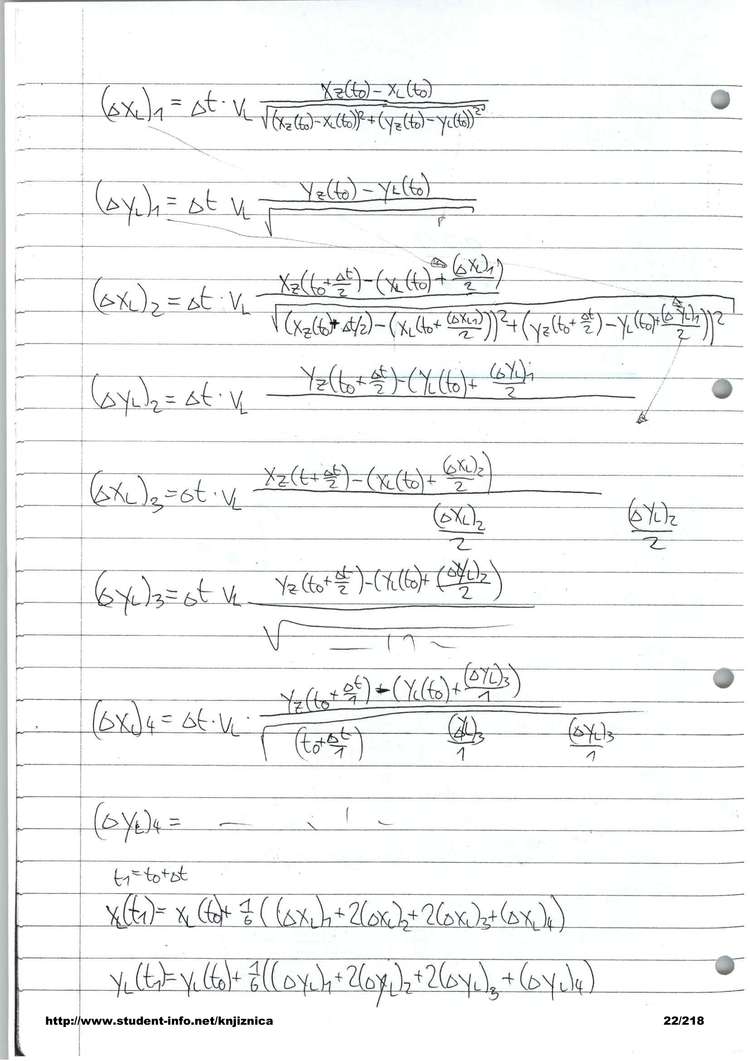 (ΔxL)1 = Δt · vL (xz(t0) − xL(t0)) / √((xz(t0)−xL(t0))² + (yz(t0)−yL(t0))²)
(ΔyL)1 = Δt vL (yz(t0) − yL(t0)) / √
(ΔxL)2 = Δt · vL (xz(t0+Δt/2) − (xL(t0) + (ΔxL)1/2)) / √((xz(t0)+Δt/2) − (xL(t0 + (ΔxL1)/2)))² + (yz(t0+Δt/2) − yL(t0)+(ΔyL)1/2))²
(ΔyL)2 = Δt · vL yz(t0+Δt/2) − (yL(t0) + (ΔyL)1/2
(ΔxL)3 = Δt · vL xz(t+Δt/2) − (xL(t0) + (ΔxL)2/2)
(ΔxL)2/2 (ΔyL)2/2
(ΔyL)3 = Δt vL (yz(t0+Δt/2) − (yL(t0) + (ΔyL)2/2)) / √ — 11 ~
(ΔxL)4 = Δt · vL · (yz(t0+Δt/1) − (yL(t0) + (ΔyL)3/1)) / √ (t0+Δt/1) (ΔL)3/1 (ΔyL)3/1
(ΔyL)4 =
t1 = t0 + Δt
xL(t1) = xL(t0) + 1/6 ((ΔxL)1 + 2(ΔxL)2 + 2(ΔxL)3 + (ΔxL)4)
yL(t1) = yL(t0) + 1/6 ((ΔyL)1 + 2(ΔyL)2 + 2(ΔyL)3 + (ΔyL)4)
http://www.student-info.net/knjiznica 22/218